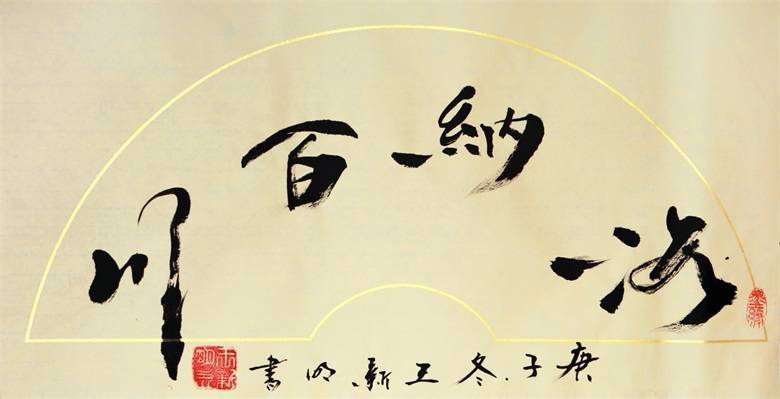 海納百川
庚子冬王新明書